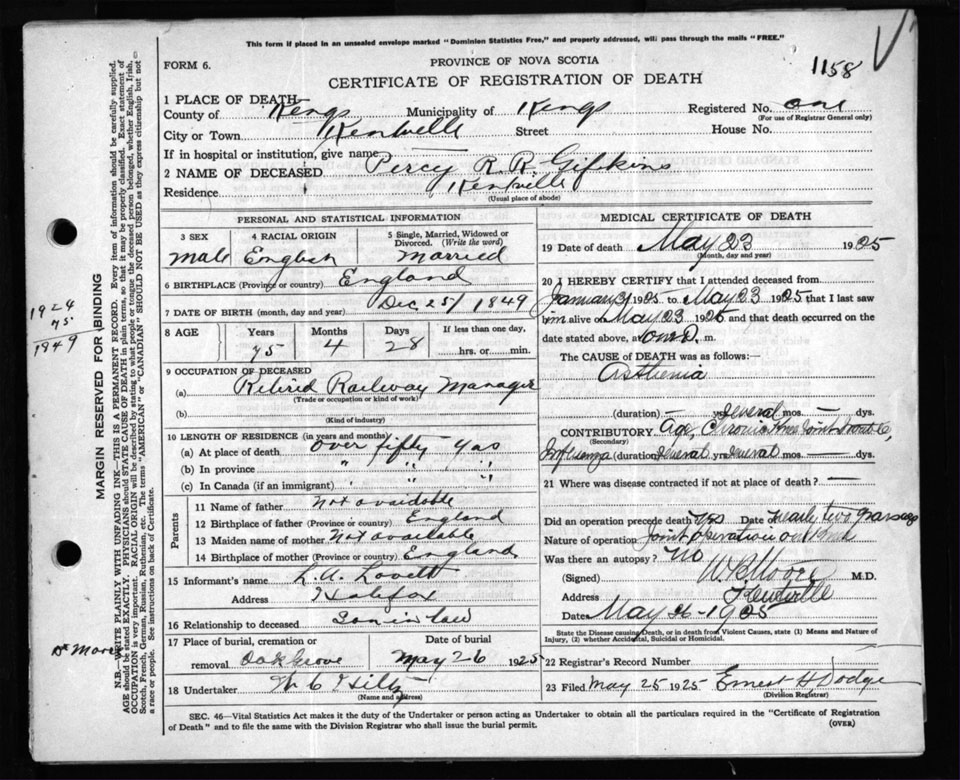 This form if placed in an unsealed envelope marked "Dominion Statistics Free," and properly addressed, will pass through the mails "FREE."
FORM 6.
PROVINCE OF NOVA SCOTIA
1158
CERTIFICATE OF REGISTRATION OF DEATH
1 PLACE OF DEATH
County of Kings Municipality of Kings Registered No. one
(For use of Registrar General only)
City or Town Kentville Street House No.
If in hospital or institution, give name
2 NAME OF DECEASED Percy R. R. Gifkins
Residence Kentville
(Usual place of abode)
PERSONAL AND STATISTICAL INFORMATION
3 SEX 4 RACIAL ORIGIN 5 Single, Married, Widowed or Divorced. (Write the word)
Male English Married
6 BIRTHPLACE (Province or country) England
7 DATE OF BIRTH (month, day and year) Dec 25/1849
8 AGE Years Months Days If less than one day,
75 4 28 hrs. or min.
9 OCCUPATION OF DECEASED
(a) Retired Railway Manager
(Trade or occupation or kind of work)
(b)
(Kind of industry)
10 LENGTH OF RESIDENCE (in years and months)
(a) At place of death over fifty yrs
(b) In province " " "
(c) In Canada (if an immigrant) " " "
Parents
11 Name of father Not available
12 Birthplace of father (Province or country) England
13 Maiden name of mother Not available
14 Birthplace of mother (Province or country) England
15 Informant's name L. A. Lovett
Address Halifax
16 Relationship to deceased Son in law
17 Place of burial, cremation or removal Oak Grove
Date of burial May 26 1925
18 Undertaker W C Hiltz
(Name and address)
MEDICAL CERTIFICATE OF DEATH
19 Date of death May 23 1925
(Month, day and year)
20 I HEREBY CERTIFY that I attended deceased from
January 1925 to May 23 1925 that I last saw
him alive on May 23 1925 and that death occurred on
date stated above, at m.
The CAUSE of DEATH was as follows:—
Asthenia
(duration) — yrs. several mos. — dys.
CONTRIBUTORY Age, Chronic Knee Joint trouble,
(Secondary)
Influenza (duration) several yrs. several mos. — dys.
21 Where was disease contracted if not at place of death? —
Did an operation precede death yes Date of nearly two years ago
Nature of operation Joint operation on knee
Was there an autopsy? No
(Signed) W B Moore M.D.
Address Kentville
Date May 26 - 1925
State the Disease causing Death, or in death from Violent Causes, state (1) Means and Nature of Injury, (2) whether Accidental, Suicidal or Homicidal.
22 Registrar's Record Number
23 Filed May 25 1925 Ernest H Dodge
(Division Registrar)
SEC. 46—Vital Statistics Act makes it the duty of the Undertaker or person acting as Undertaker to obtain all the particulars required in the "Certificate of Registration
of Death" and to file the same with the Division Registrar who shall issue the burial permit.
(OVER)
MARGIN RESERVED FOR BINDING
N.B.—WRITE PLAINLY WITH UNFADING INK—THIS IS A PERMANENT RECORD. Every item of information should be carefully supplied.
AGE should be stated EXACTLY. PHYSICIANS should STATE CAUSE OF DEATH in plain terms, so that it may be properly classified. Exact statement of
OCCUPATION is very important. RACIAL ORIGIN will be described by stating to what people or tongue the deceased person belonged, whether English, Irish,
Scotch, French, German, Russian, Ruthenian, etc. The terms "AMERICAN" or "CANADIAN" SHOULD NOT BE USED as they express citizenship but not
a race or people. See instructions on back of Certificate.
1924
75
1849
Dr Moore